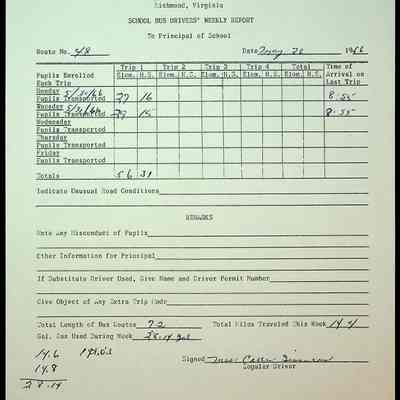 Richmond, Virginia
SCHOOL BUS DRIVERS' WEEKLY REPORT
To Principal of School
Route No. 48 Date May 1966
Trip 1 Trip 2 Trip 3 Trip 4 Total Time of
Pupils Enrolled Elem. H.S. Elem. H.S. Elem. H.S. Elem. H.S. Elem. H.S. Arrival on
Each Trip Last Trip
Monday 5/30/66
Pupils Transported 27 16 8:55
Tuesday 5/31/66
Pupils Transported 29 15 8:55
Wednesday
Pupils Transported
Thursday
Pupils Transported
Friday
Pupils Transported
Totals 56 31
Indicate Unusual Road Conditions
REMARKS
Note Any Misconduct of Pupils
Other Information for Principal
If Substitute Driver Used, Give Name and Driver Permit Number
Give Object of Any Extra Trip Made
Total Length of Bus Routes 72 Total Miles Traveled This Week 144
Gal. Gas Used During Week 28.14 Gal
14.6
Signed Mrs.
14.8 Regular Driver
28.14